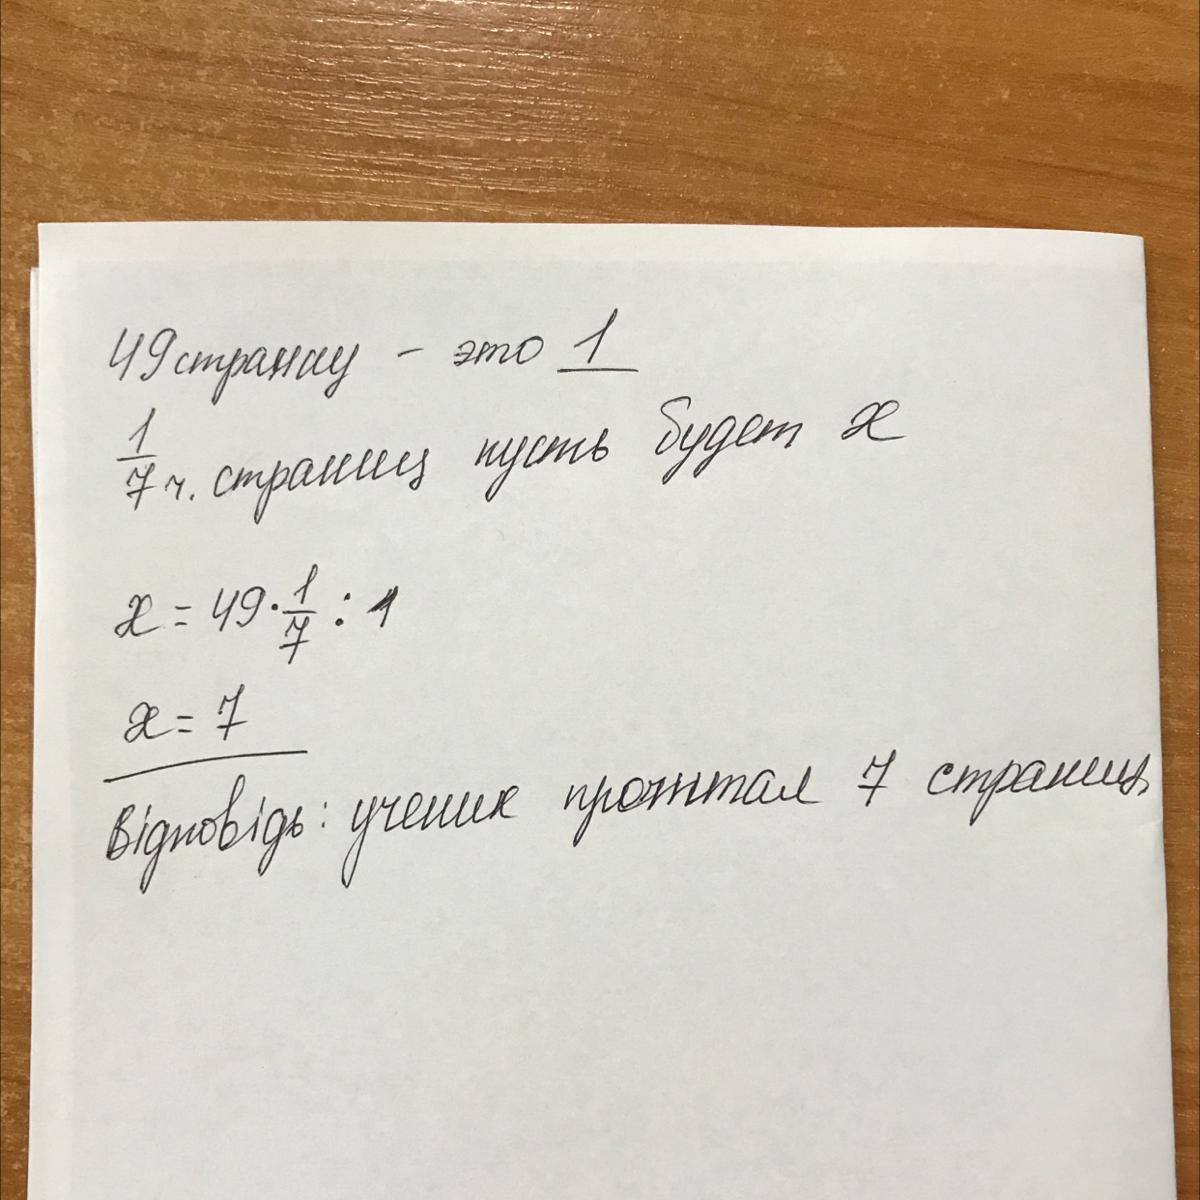 49 страниц - это 1
1/7 ч. страниц пусть будет x
x = 49 · 1/7 : 1
x = 7
Відповідь: ученик прочитал 7 страниц